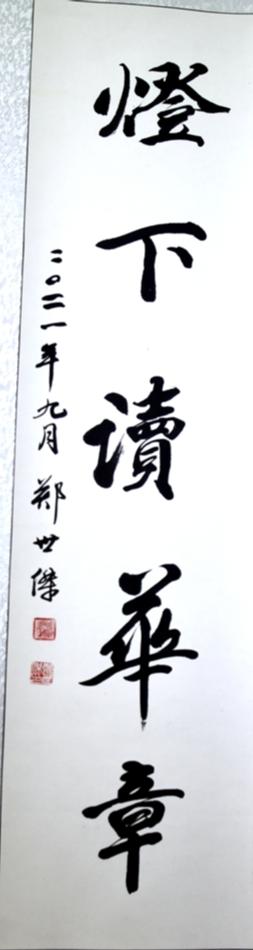 燈下讀華章
二〇二一年九月 郑世傑